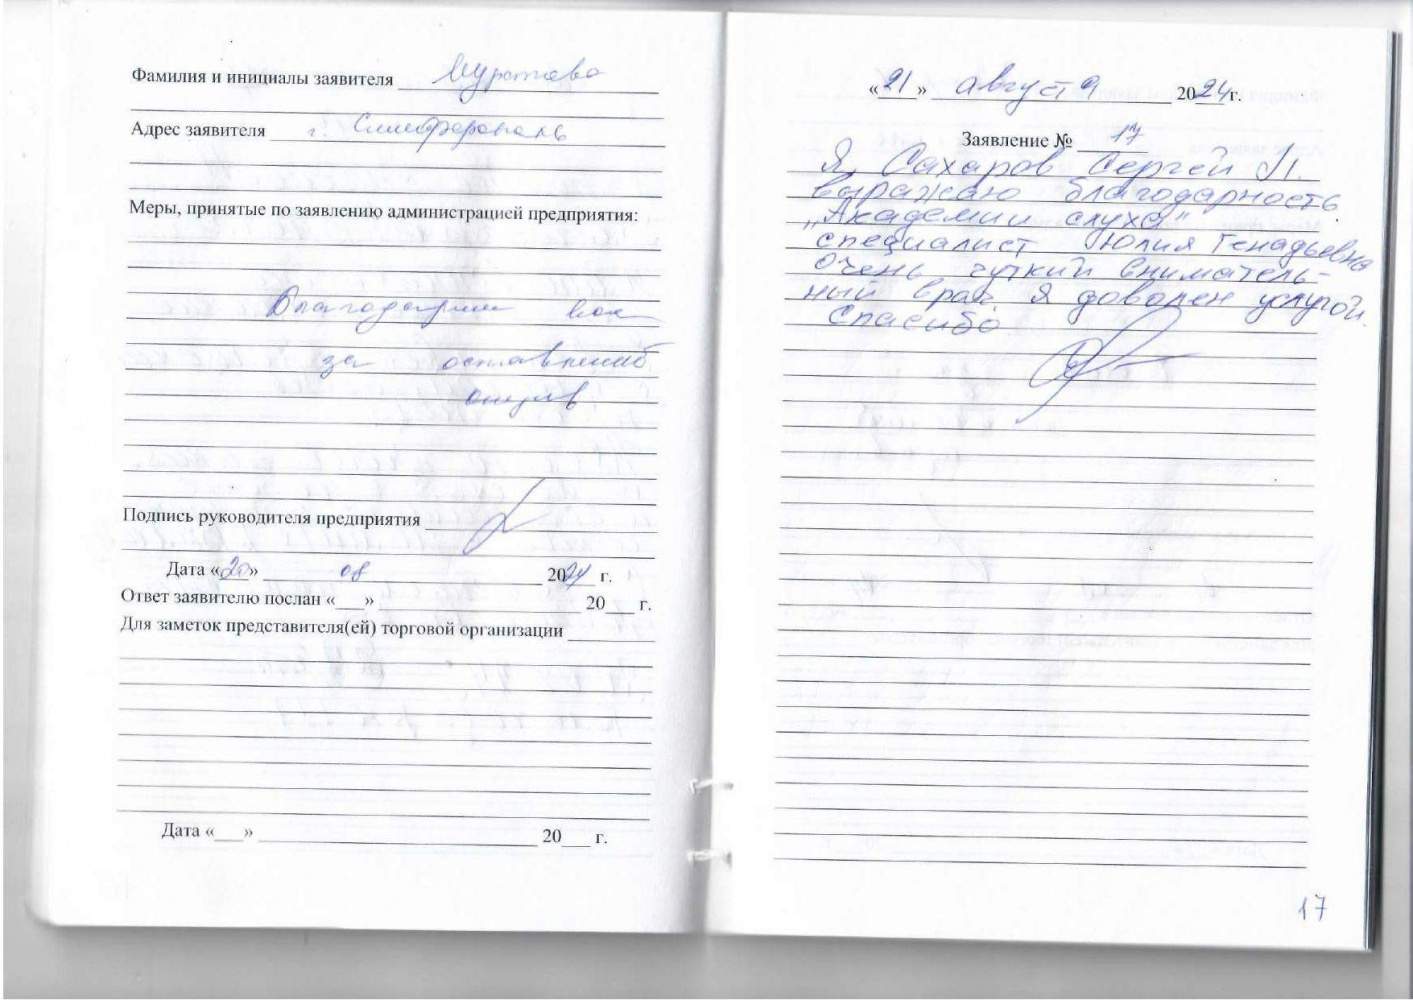 Фамилия и инициалы заявителя Муратова
Адрес заявителя г. Симферополь
Меры, принятые по заявлению администрацией предприятия:
Благодарим вас
за оставленный
отзыв
Подпись руководителя предприятия
Дата «20» 08 2024 г.
Ответ заявителю послан «___» 20___ г.
Для заметок представителя(ей) торговой организации
Дата «___» 20___ г.
«21» август а 2024г.
Заявление № 17
Я, Сахаров Сергей П.
выражаю благодарность
"Академии слуха"
специалист Юлия Генадьевна
очень чуткий вниматель-
ный врач. Я доволен услугой.
Спасибо
17